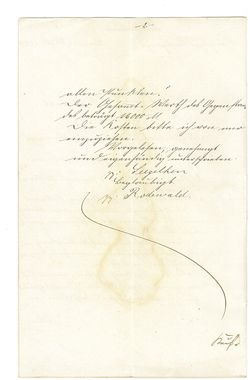 -2-
allen Punkten.
Der Gesamt-Werth des Gegenstan-
des beträgt 16000 M
Die Kosten bitte ich von mir
einzuziehen.
Vorgelesen, genehmigt
und eigenhändig unterschrieben
Beglaubigt
Rodewald.